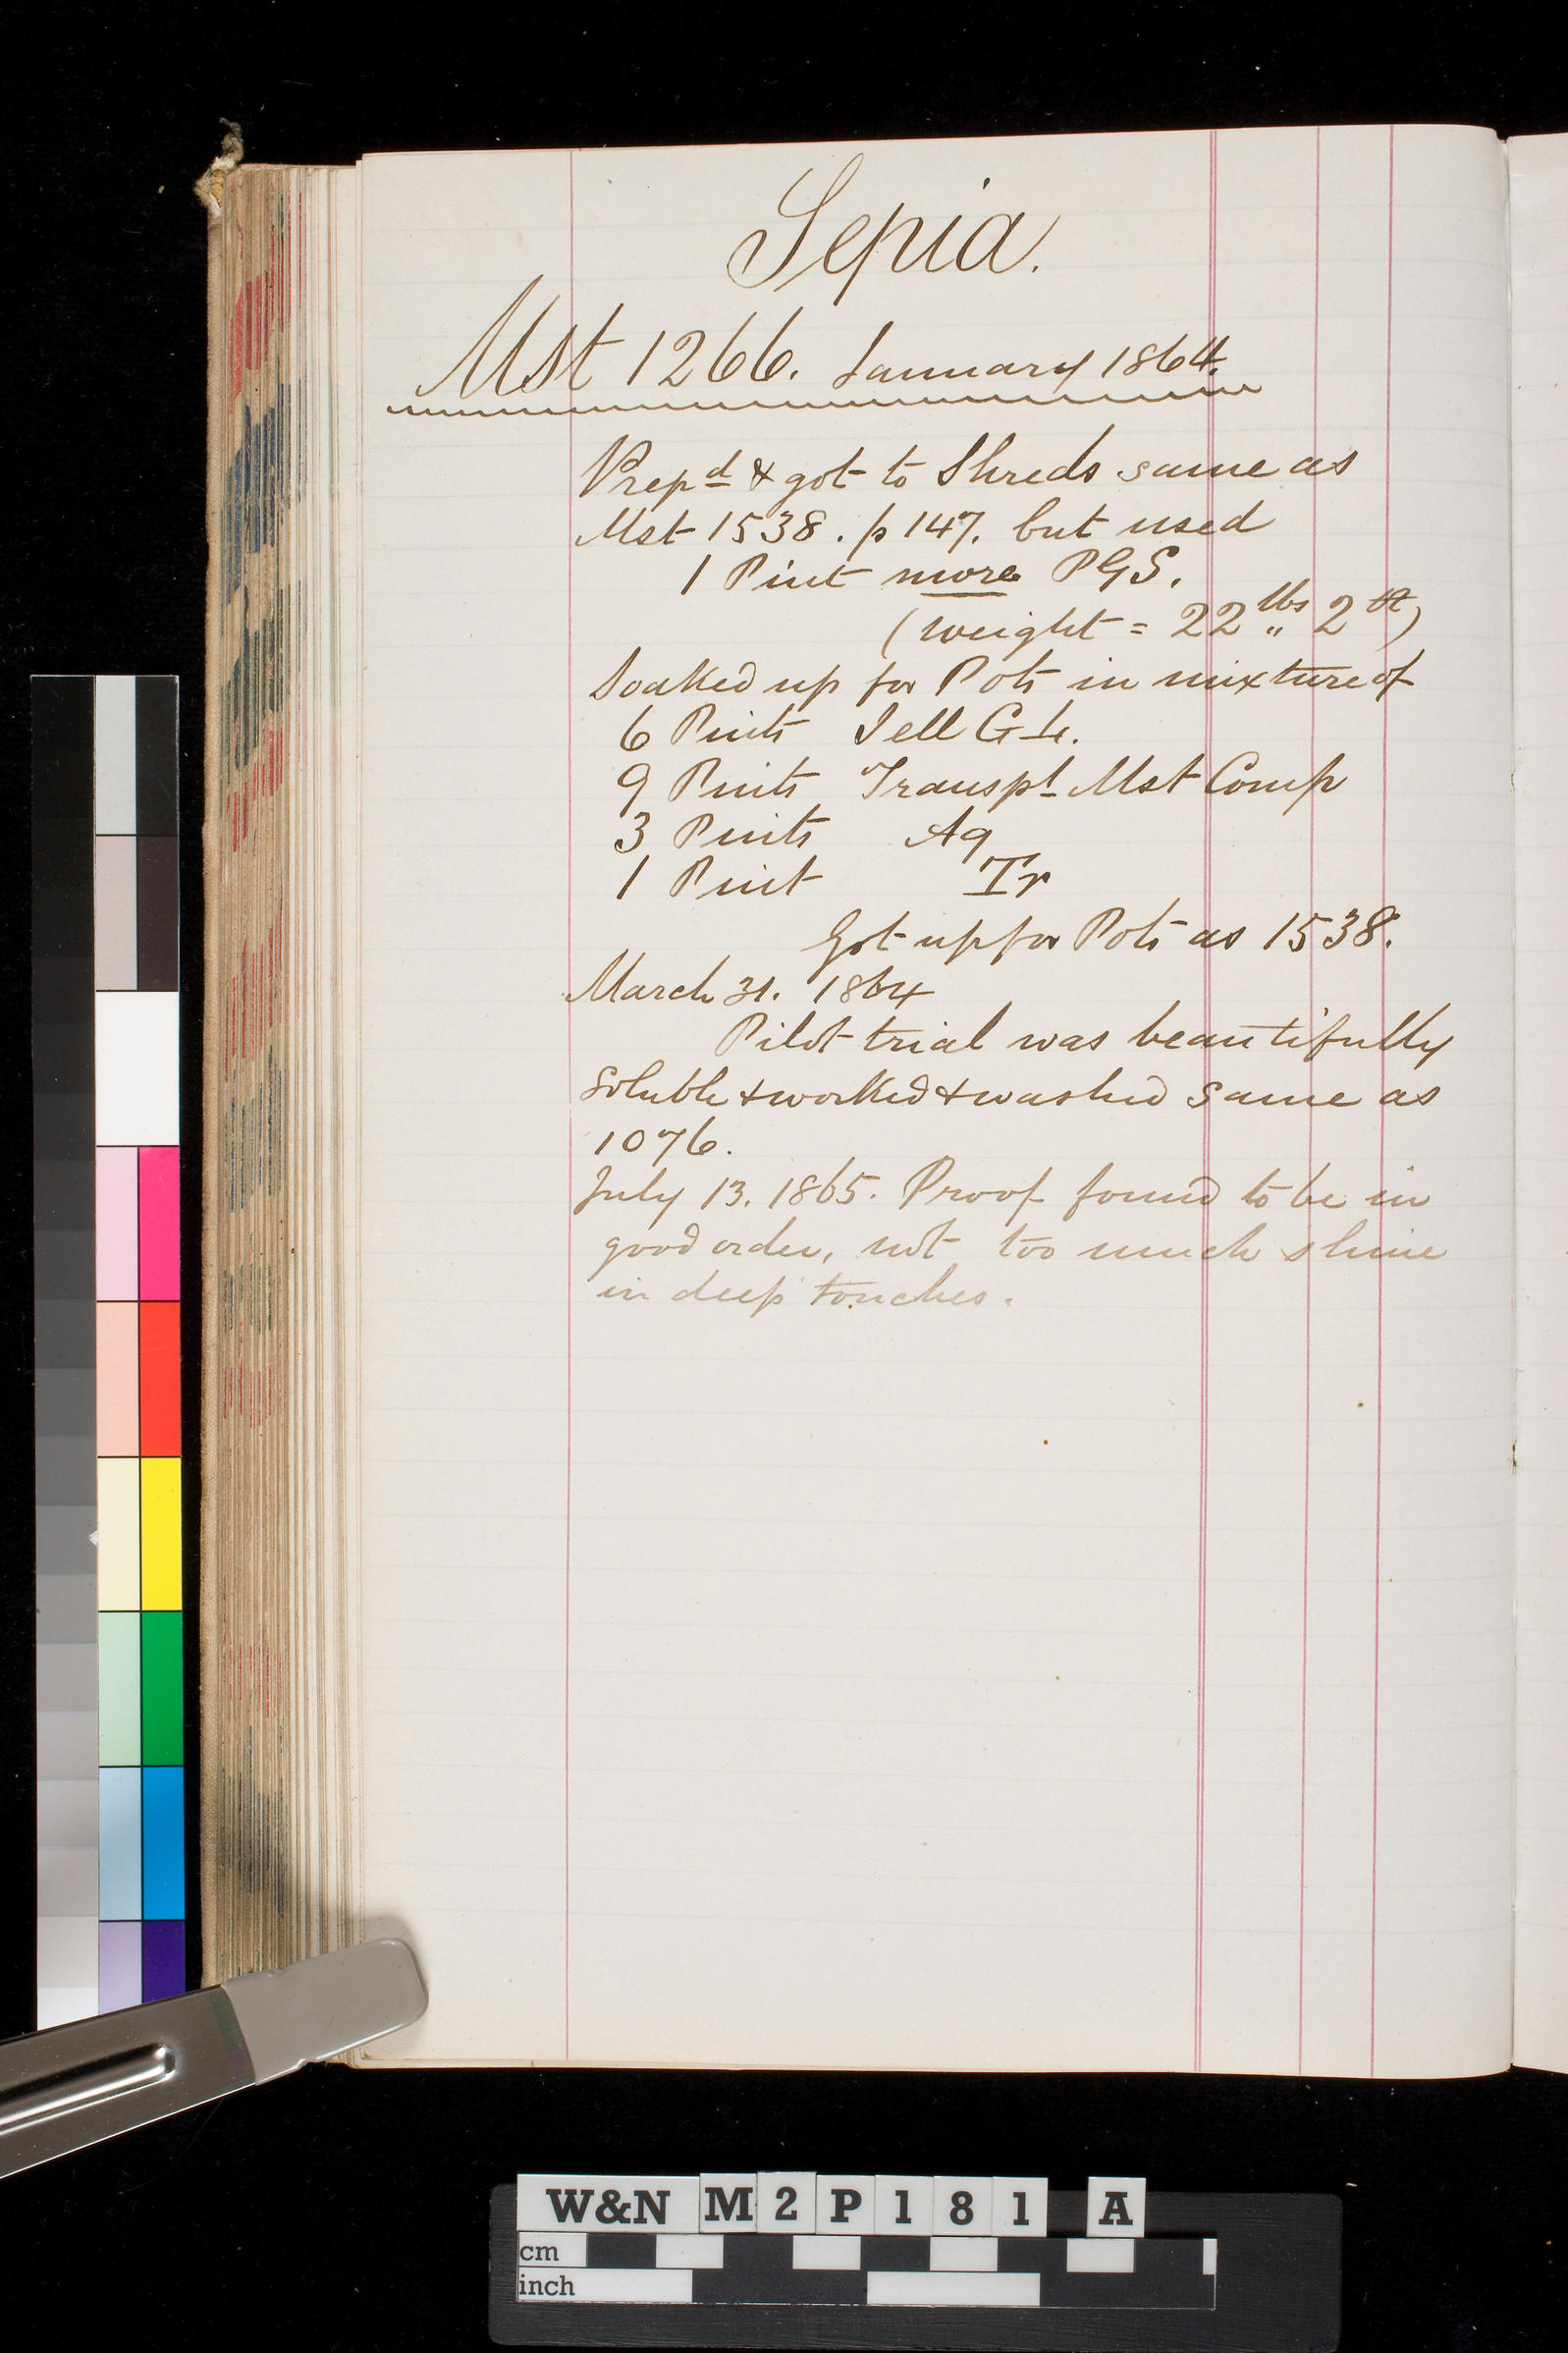 Sepia.
Mst 1266. January 1864.
Prepd & got to Shreds same as
Mst 1538. p 147. but used
1 Pint more PGS.
(weight = 22 lbs 2
Soaked up for Pots in mixture of
6 Pints Jell G
9 Pints Transpt Mst Comp
3 Pints Aq
1 Pint Tr
Got up for Pots as 1538.
March 31. 1864
Pilot trial was beautifully
soluble & worked & washed same as
1076.
July 13. 1865. Proof found to be in
good order, not too much shine
in deep touches.
W&N M2P181 A
cm
inch